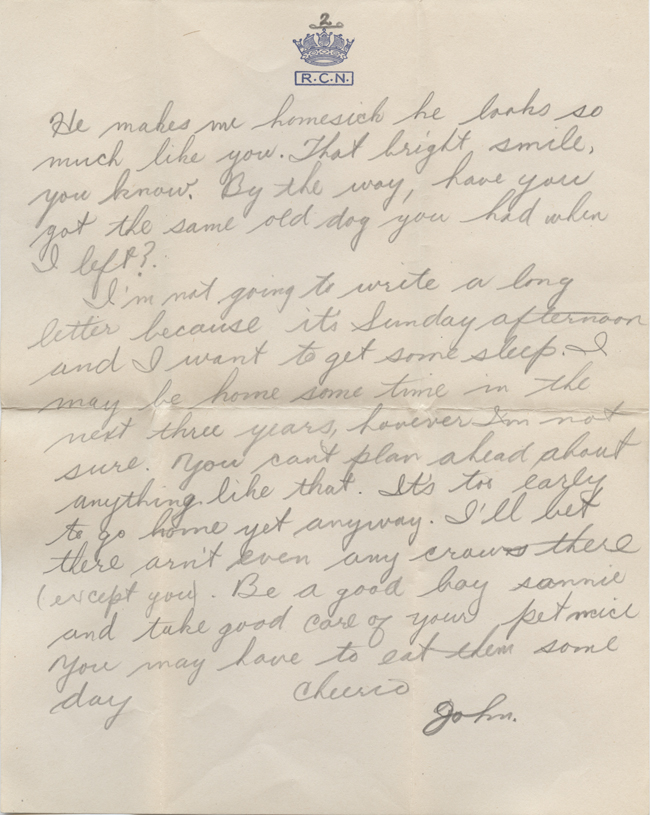 2
R.C.N.
He makes me homesick he looks so
much like you. That bright smile,
you know. By the way, have you
got the same old dog you had when
I left?
I'm not going to write a long
letter because it's Sunday afternoon
and I want to get some sleep. I
may be home some time in the
next three years, however I'm not
sure. You can't plan ahead about
anything like that. It's too early
to go home yet anyway. I'll bet
there arn't even any crows there
(except you). Be a good boy sannie
and take good care of your pet mice
You may have to eat them some
day
Cheerio
John.